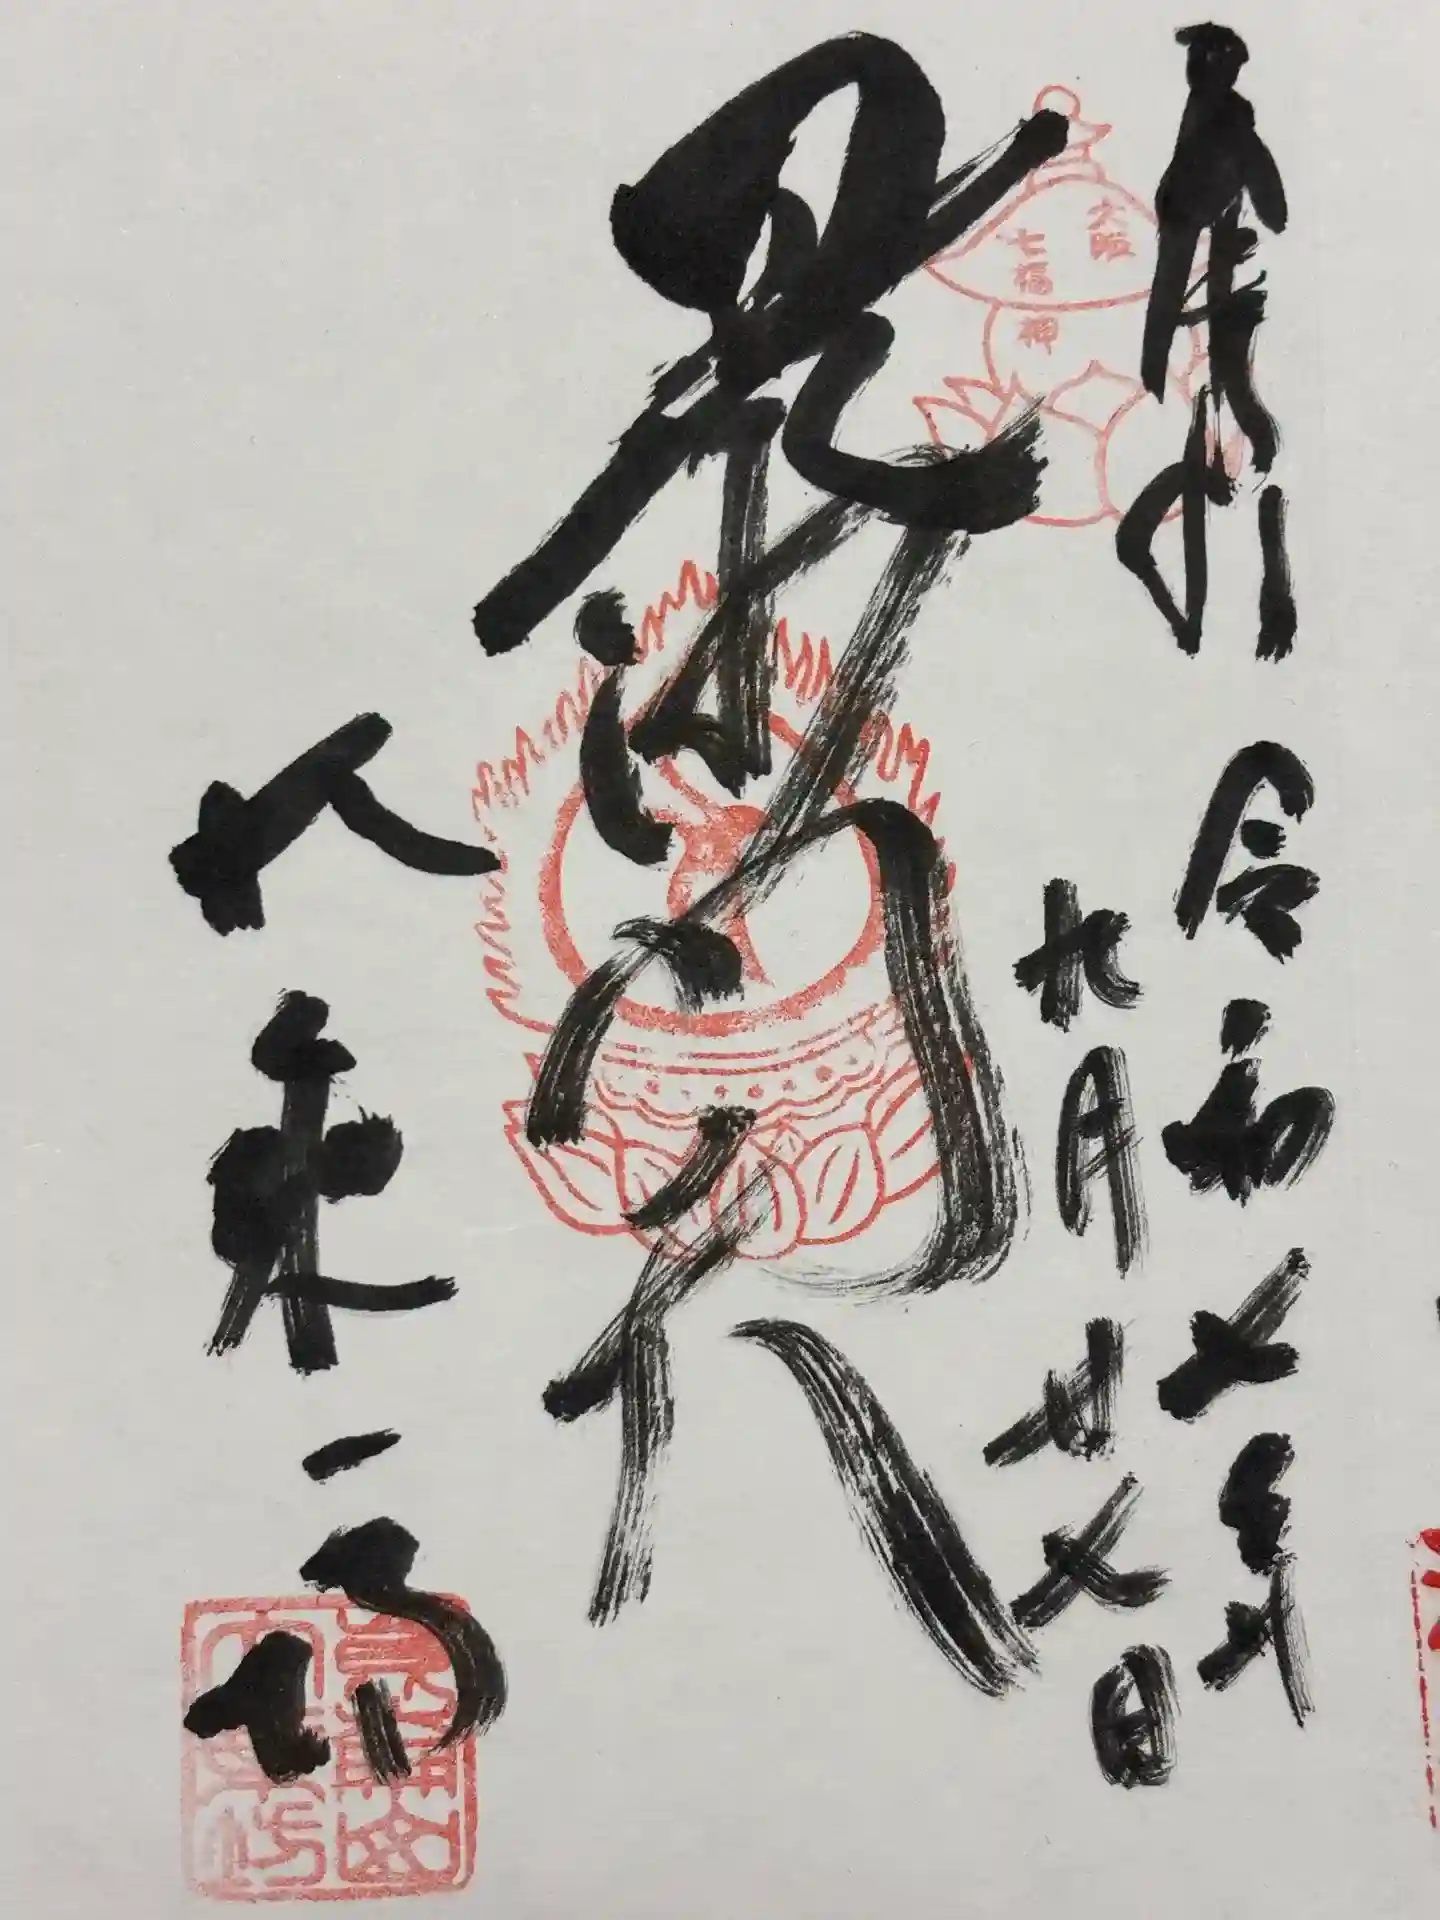 奉拝
令和七年
九月廿七日
大阪
七福神
毘沙門天
大乗坊